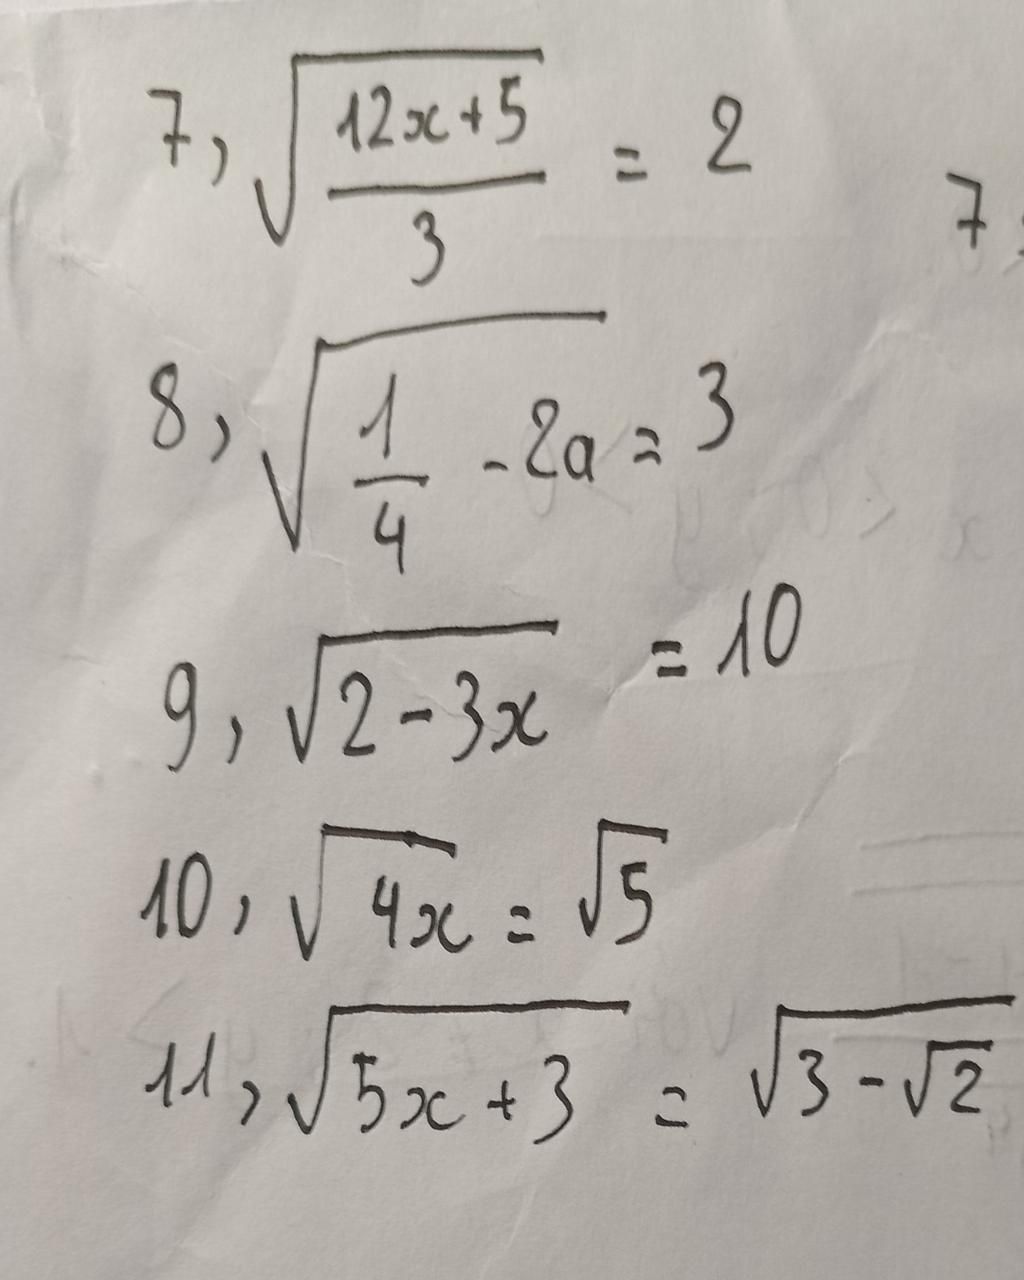 7, √((12x+5)/3) = 2
7
8, √(1/4 - 2a) = 3
9, √(2-3x) = 10
10, √(4x) = √5
11, √(5x+3) = √(3-√2)